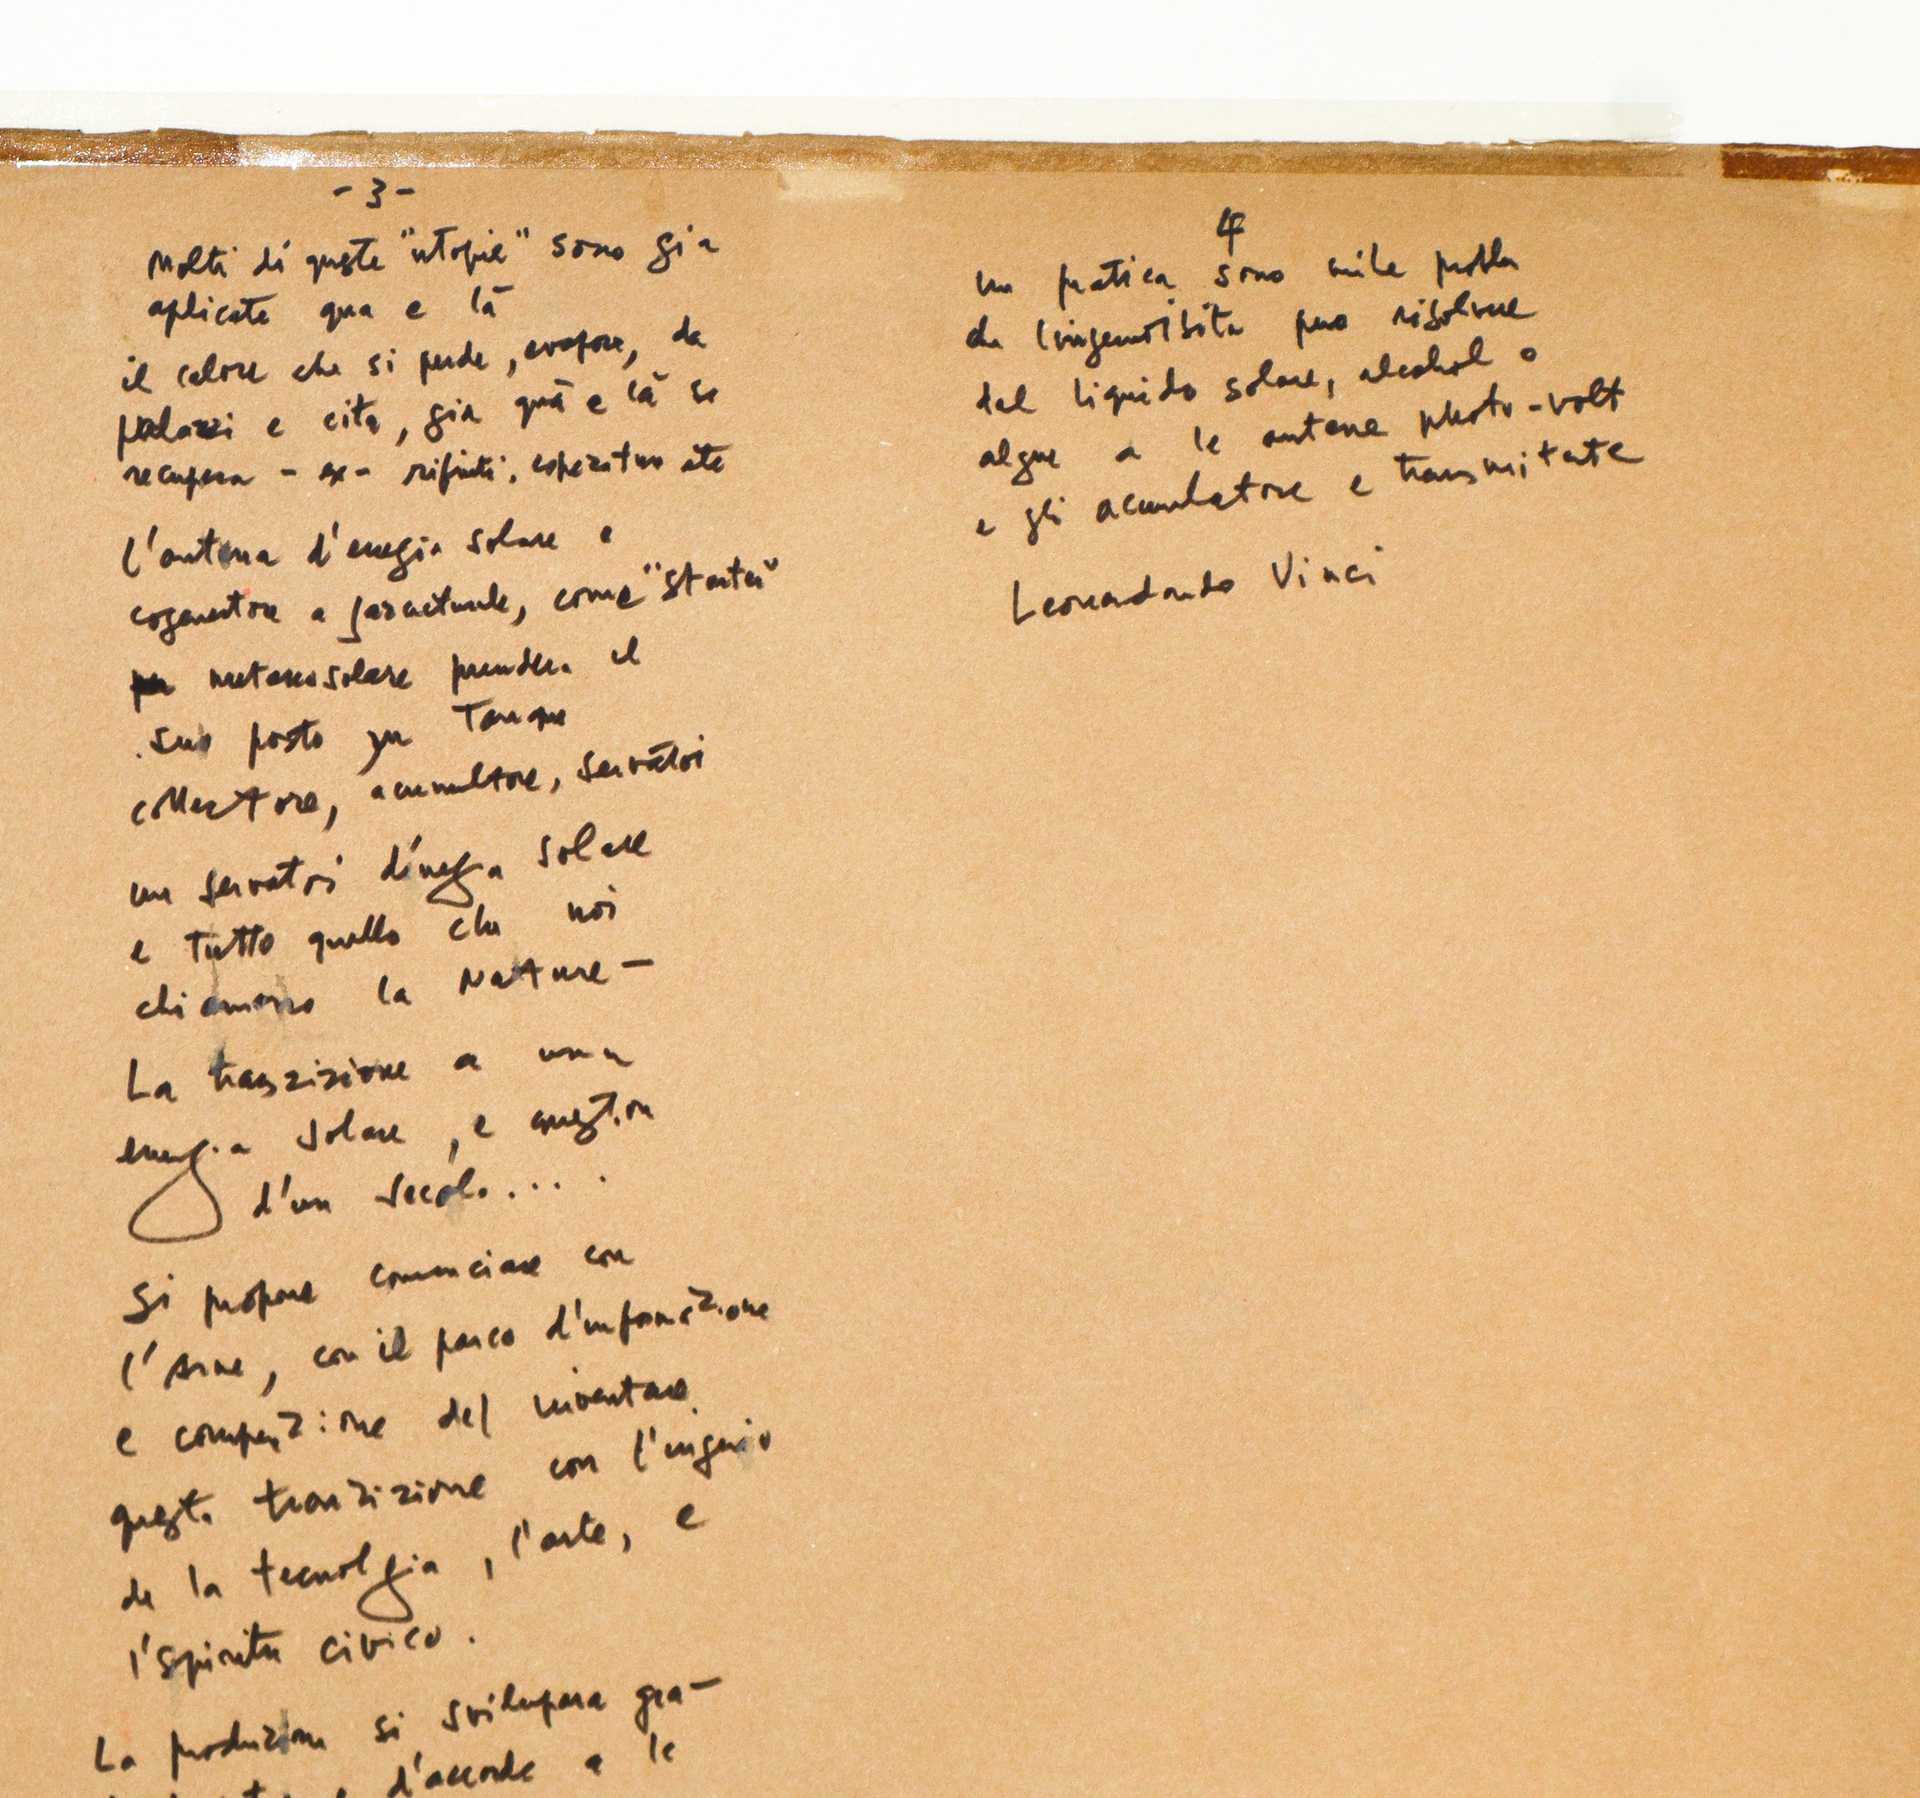 - 3 -
Molti di queste "utopie" sono gia
aplicate qua e là
il calore che si perde, evapore, da
palazzi e cita, gia quà e là se
recupera - ex - rifiuti,
L'antena d'enegia solare e
cogenertore a come "Starter"
metanosolare prendera il
suo posto Tanque
collectore, acumultore, servatoi
un servatoi d'enegia solare
e tutto quello che noi
chiamamo la Natture -
La transzizione a una
energia solare, e question
d'un secolo....
Si propone comminciare con
l'Arne, con il parco d'informazione
e del
questa tranzizione con l'ingenio
de la tecnolgia, l'arte, e
l'spirito civico.
La produzione si svilupara gra-
d'accorde a le
4
un pratica sono mile
che puo risolvere
dal liquido solare, alcohol o
algue a le antene photo-volt
e gli acumulatore e transmitente
Leonardondo Vinci